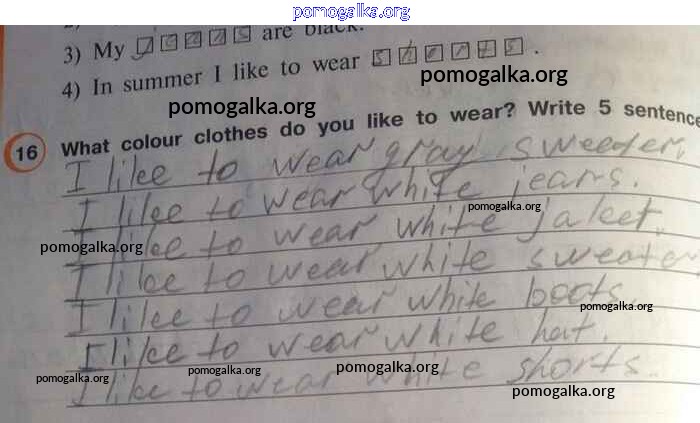 pomogalka.org
3) My jeans are black.
4) In summer I like to wear shorts.
pomogalka.org
pomogalka.org
16 What colour clothes do you like to wear? Write 5 sentence
I like to wear gray sweeder.
I like to wear white jears.
pomogalka.org
I like to wear white jaket.
pomogalka.org
I like to wear white sweater
I like to wear white boots.
pomogalka.org
I like to wear white hat.
pomogalka.org pomogalka.org pomogalka.org
I like to wear white shorts.
pomogalka.org